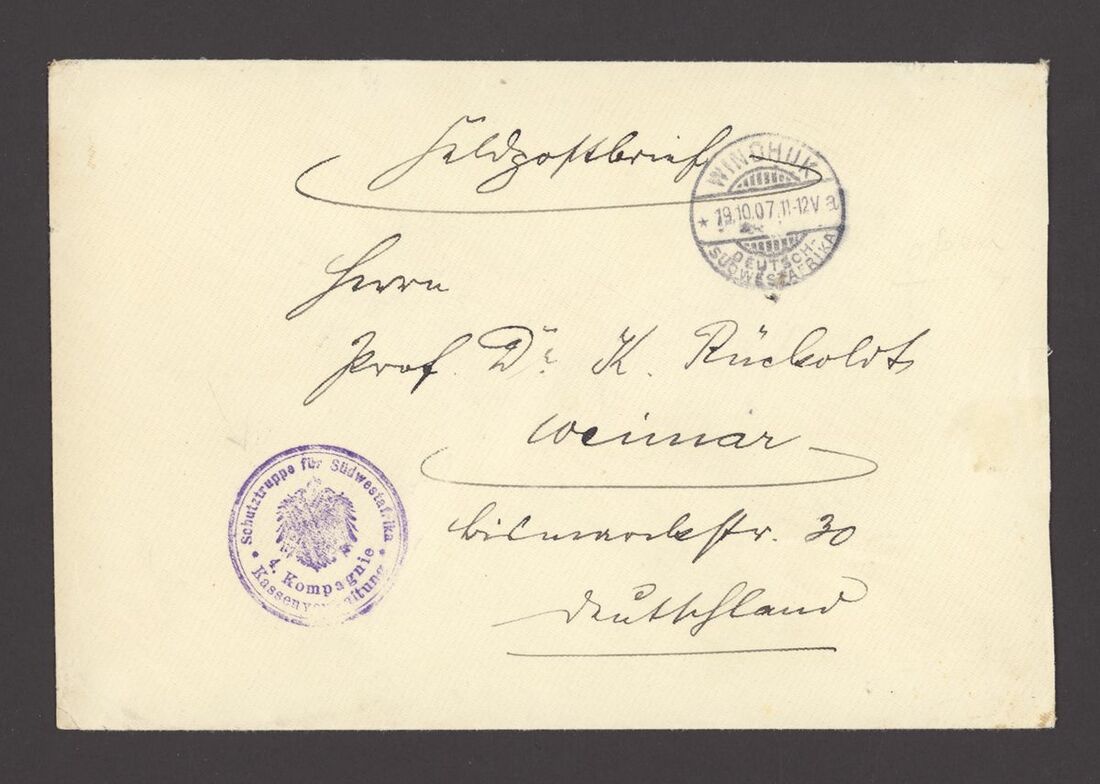 Feldpostbrief
WINDHUK
* 19.10.07.11-12V a
DEUTSCH-
SÜDWESTAFRIKA
Herrn
Prof. Dr. K. Rückoldt
Weimar
Bismarckstr. 30
Deutschland
Schutztruppe für Südwestafrika
4. Kompagnie
• Kassenverwaltung •